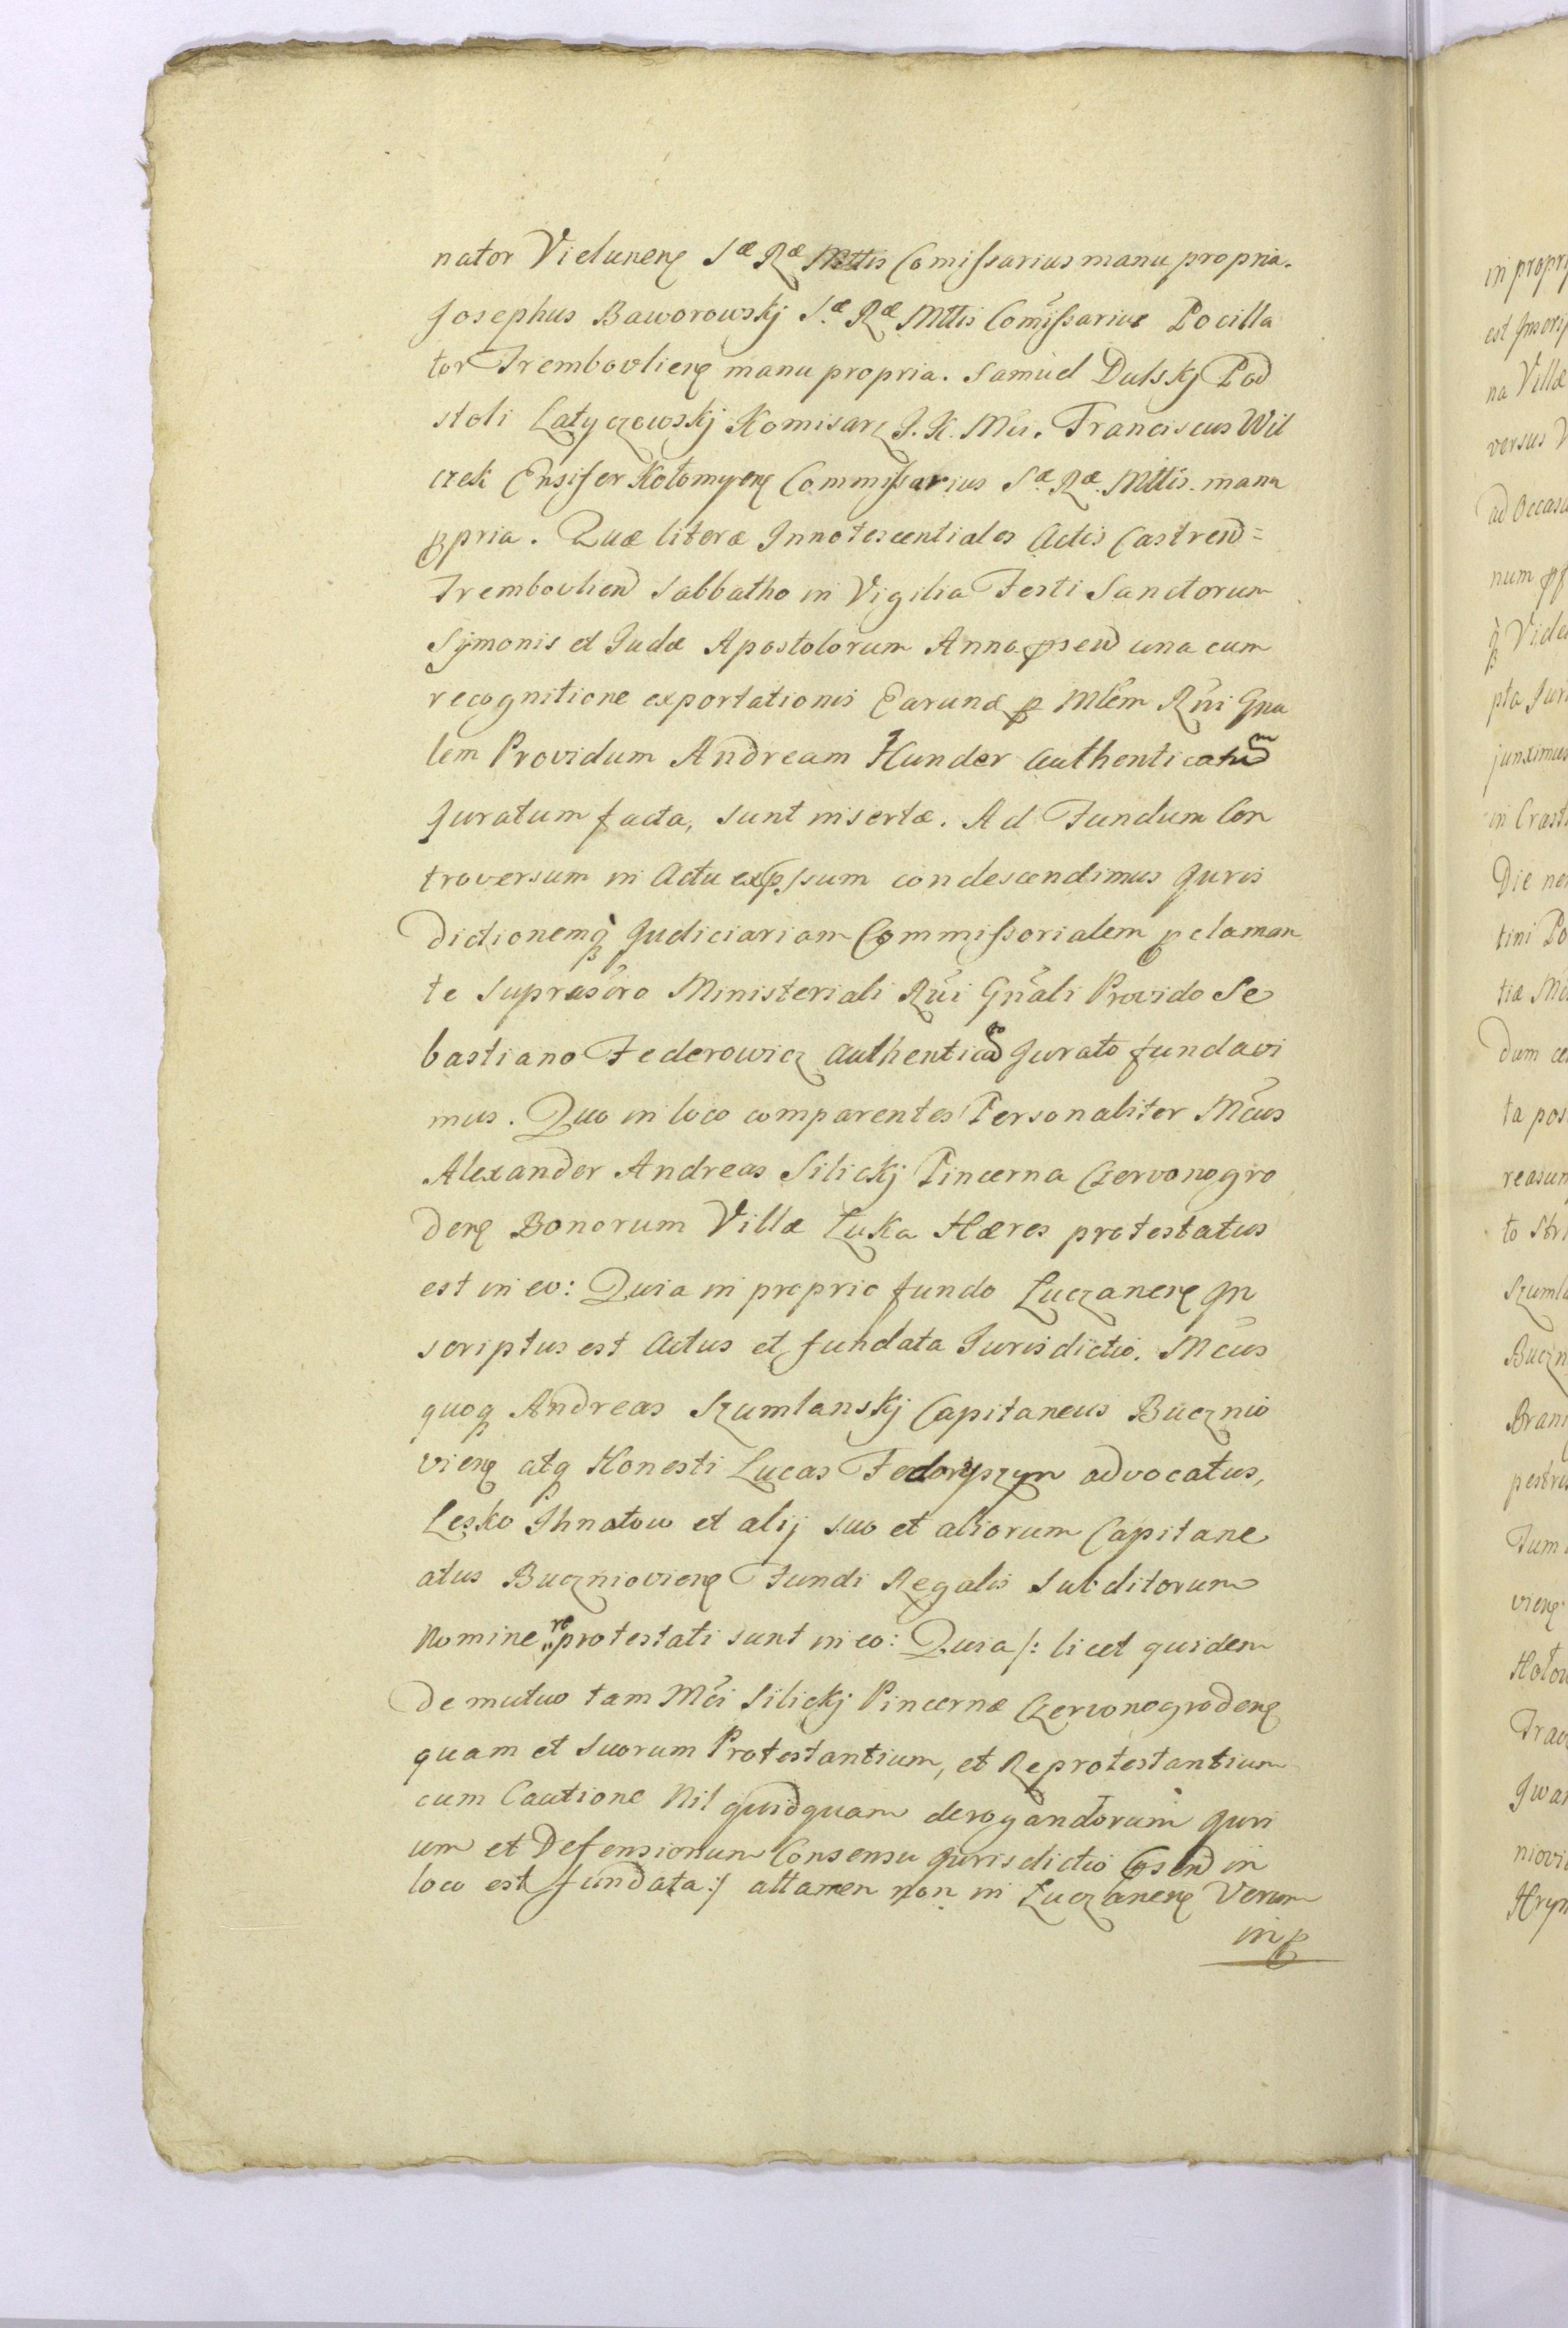 nator Vielunenę Sæ Ræ Mttis Comissarius manu propria.
Josephus Baworowskj Sæ Ræ Mttis Comissarius Pocilla
tor Trembovlienę manu propria. Samuel Dulskj Pod
stoli Latyczowskj Komisarz J. K. Mci. Franciscus Wil
czek Ensifer Kołomyenę Commissarius Sæ Ræ Mttis manu
ppria. Quæ literæ Innotescentiales Actis Castrend=
Trembovliend Sabbatho in Vigilia Festi Sanctorum
Symonis et Judæ Apostolorum Anno psend una cum
recognitione exportationis Earund p Mlem Rni Gna
lem Providum Andream Hunder Authenticatum
Juratum facta, sunt insertæ. Ad Fundum Con
troversum in Actu expssum condescendimus Juris
dictionemq Judiciariam Commissorialem pclaman
te Suprascro Ministeriali Rni Gnali Provido Se
bastiano Federowicz Authenticato Jurato fundavi
mus. Quo in loco comparentes Personaliter Mcus
Alexander Andreas Silickj Pincerna Czervonogro
denę Bonorum Villæ Łuka Hæres protestatus
est in eo: Quia in proprio fundo Łuczanenę In
scriptus est Actus et fundata Jurisdictio. Mcus
quoq Andreas Szumlanskj Capitaneus Bucznio
vienę atq Honesti Lucas Fedoryszyn advocatus,
Lesko Ihnatow et alij suo et aliorum Capitane
atus Buczniovienę Fundi Regalis Subditorum
Nomine reprotestati sunt in eo: Quia /: licet quidem
de mutuo tam Mci Silickj Pincernæ Czervonogrodenę
quam et Suorum Protestantium, et Reprotestantium
cum Cautione Nil quidquam derogandorum Juri
um et Defensionum Consensu Jurisdictio psend in
loco est fundata :/ attamen non in Łuczanenę Verum
in p
in propry
na Villæ
versus
ad Occasu
num
pta Juri
junximus
in Crasti
Die
tini Po
dum
ta pos
reasum
Szumla
Buczn
Tum
vienę
niovie
Hryn